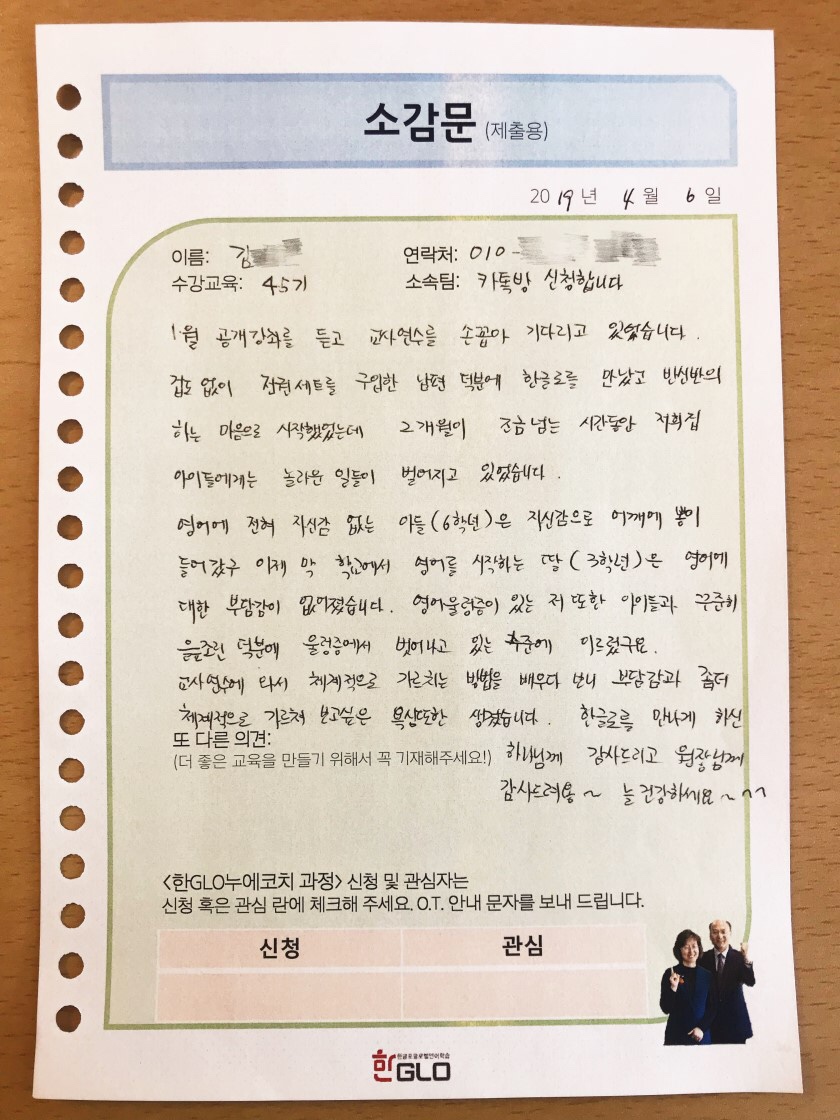 소감문 (제출용)
2019년 4월 6일
이름: 김
연락처: 010-
수강교육: 45기
소속팀: 카톡방 신청합니다
1월 공개강좌를 듣고 교사연수를 손꼽아 기다리고 있었습니다.
겁도 없이 전련세트를 구입한 남편 덕분에 한글로를 만났고 반신반의
하는 마음으로 시작했었는데 2개월이 조금 넘는 시간동안 저희집
아이들에게는 놀라운 일들이 벌어지고 있었습니다.
영어에 전혀 자신감 없는 아들(6학년)은 자신감으로 어깨에 뽕이
들어갔구 이제 막 학교에서 영어를 시작하는 딸(3학년)은 영어에
대한 부담감이 없어졌습니다. 영어울렁증이 있는 저 또한 아이들과 꾸준히
읊조린 덕분에 울렁증에서 벗어나고 있는 수준에 이르렀구요.
교사연수에 와서 체계적으로 가르치는 방법을 배우다 보니 부담감과 좀더
체계적으로 가르쳐 보고싶은 욕심또한 생겼습니다. 한글로를 만나게 하신
또 다른 의견:
(더 좋은 교육을 만들기 위해서 꼭 기재해주세요!)
하나님께 감사드리고 원장님께
감사드려용~ 늘 건강하세요~^^
<한GLO누에코치 과정> 신청 및 관심자는
신청 혹은 관심 란에 체크해 주세요. O.T. 안내 문자를 보내 드립니다.
신청 관심
한GLO